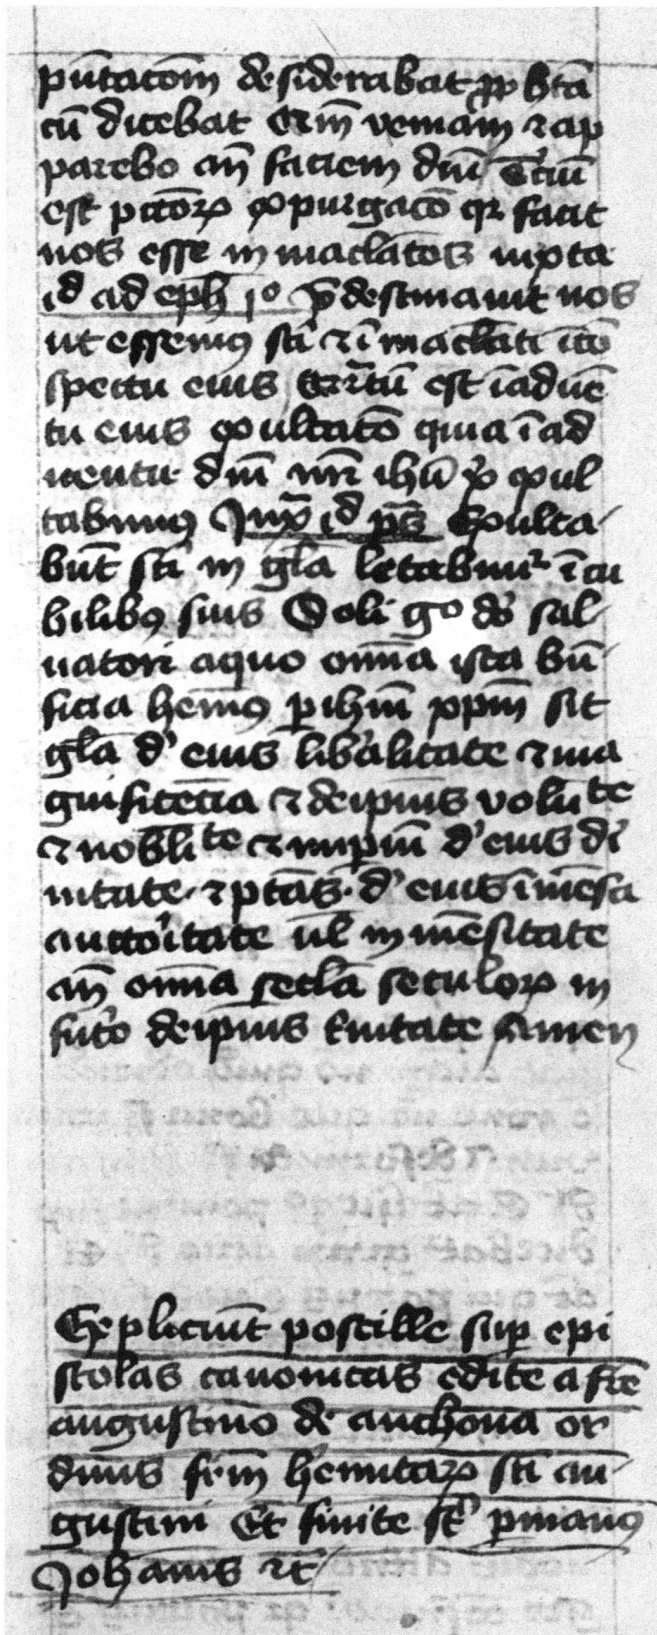 pn̄tacōm desiderabat ꝓph̄tā
cū dicebat Etīm veniam ⁊ ap
parebo an̄ faciem dn̄i Tʼciū
est pctōꝝ expurgacō qr facit
nos esse in maclatos iuxta
id ad eph̄ 1o p̄destinauit nos
ut essemꝰ scī ⁊ ī maclati ī cō
spectu eius Qrtū est ī aduē
tu eius exultacō quia ī ad
uentu dn̄i nr̄i ihū xp̄i exul
tabimꝰ Iux̄ id ps̄ Exulta
būt scī in gl̄a letabūtʳ ī cu
bilibꝰ suis Soli go dō sal
uatori a quo om̄ia ista bn̄
ficia hēmꝰ ꝑ ihm̄ xpm̄ sit
gl̄a dʼ eius libʼalitate ⁊ ma
gnificētia ⁊ de ipius volūte
⁊ nobl̄ite ⁊ impiū dʼ eius di
uitate ⁊ ptās dʼ eius īmēsa
auctoʼitate ul̄ in mēsitate
an̄ om̄ia secl̄a seculoꝝ in
futʼo de ipius tʼnitate Amen
Expliciūt postille suꝑ epi
stolas canonicas edite a frē
augustino de anchona or
dinis frm̄ hʼemitaꝝ scī au
gustini Et finite st̄ ꝑ manꝰ
Johānis ⁊c̄